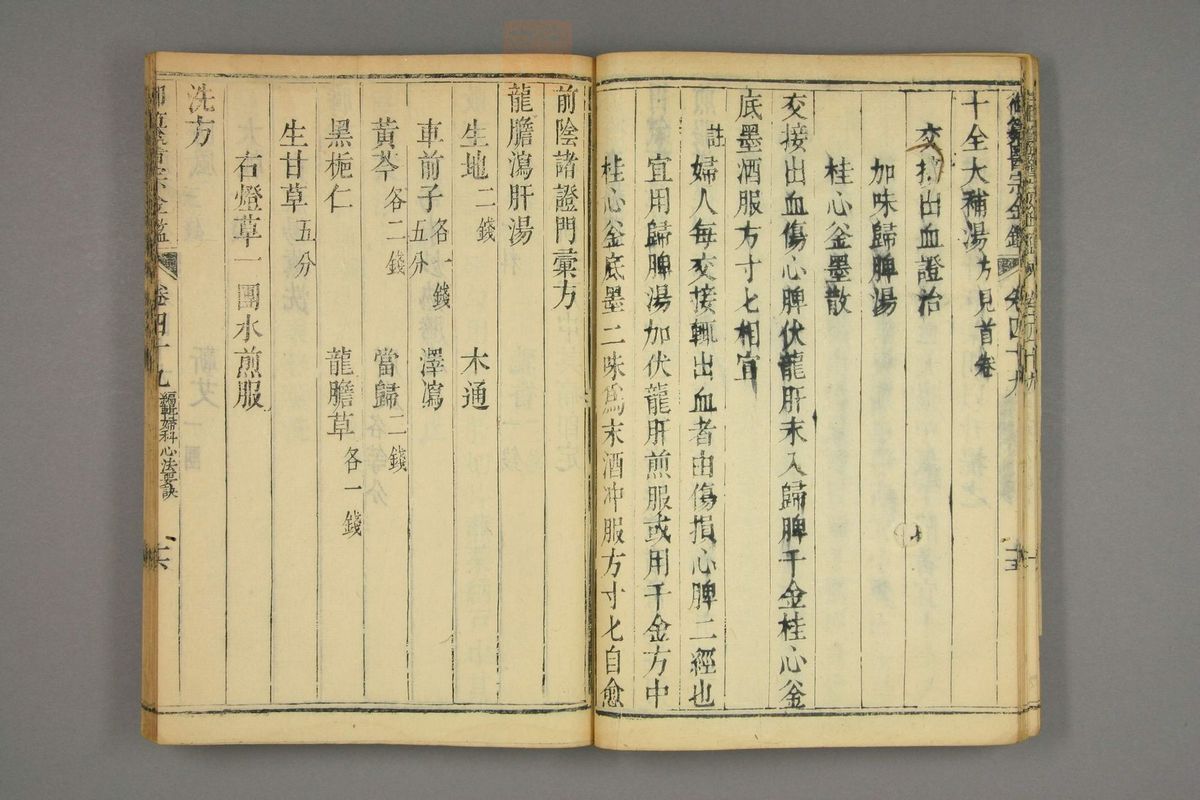 御纂醫宗金鑑 卷四十九
十全大補湯方見首卷
交接出血證治
加味歸脾湯
桂心釜墨散
交接出血傷心脾伏龍肝末入歸脾千金桂心釜
底墨酒服方寸匕相宜
註婦人每交接輒出血者由傷損心脾二經也
宜用歸脾湯加伏龍肝煎服或用千金方中
桂心釜底墨二味為末酒冲服方寸匕自愈
前陰諸證門彙方
龍膽瀉肝湯
生地二錢 木通
車前子各一錢五分 澤瀉
黃芩各二錢 當歸二錢
黑梔仁 龍膽草各一錢
生甘草五分
右燈草一團水煎服
洗方
卷四十九 編輯婦科心法要訣